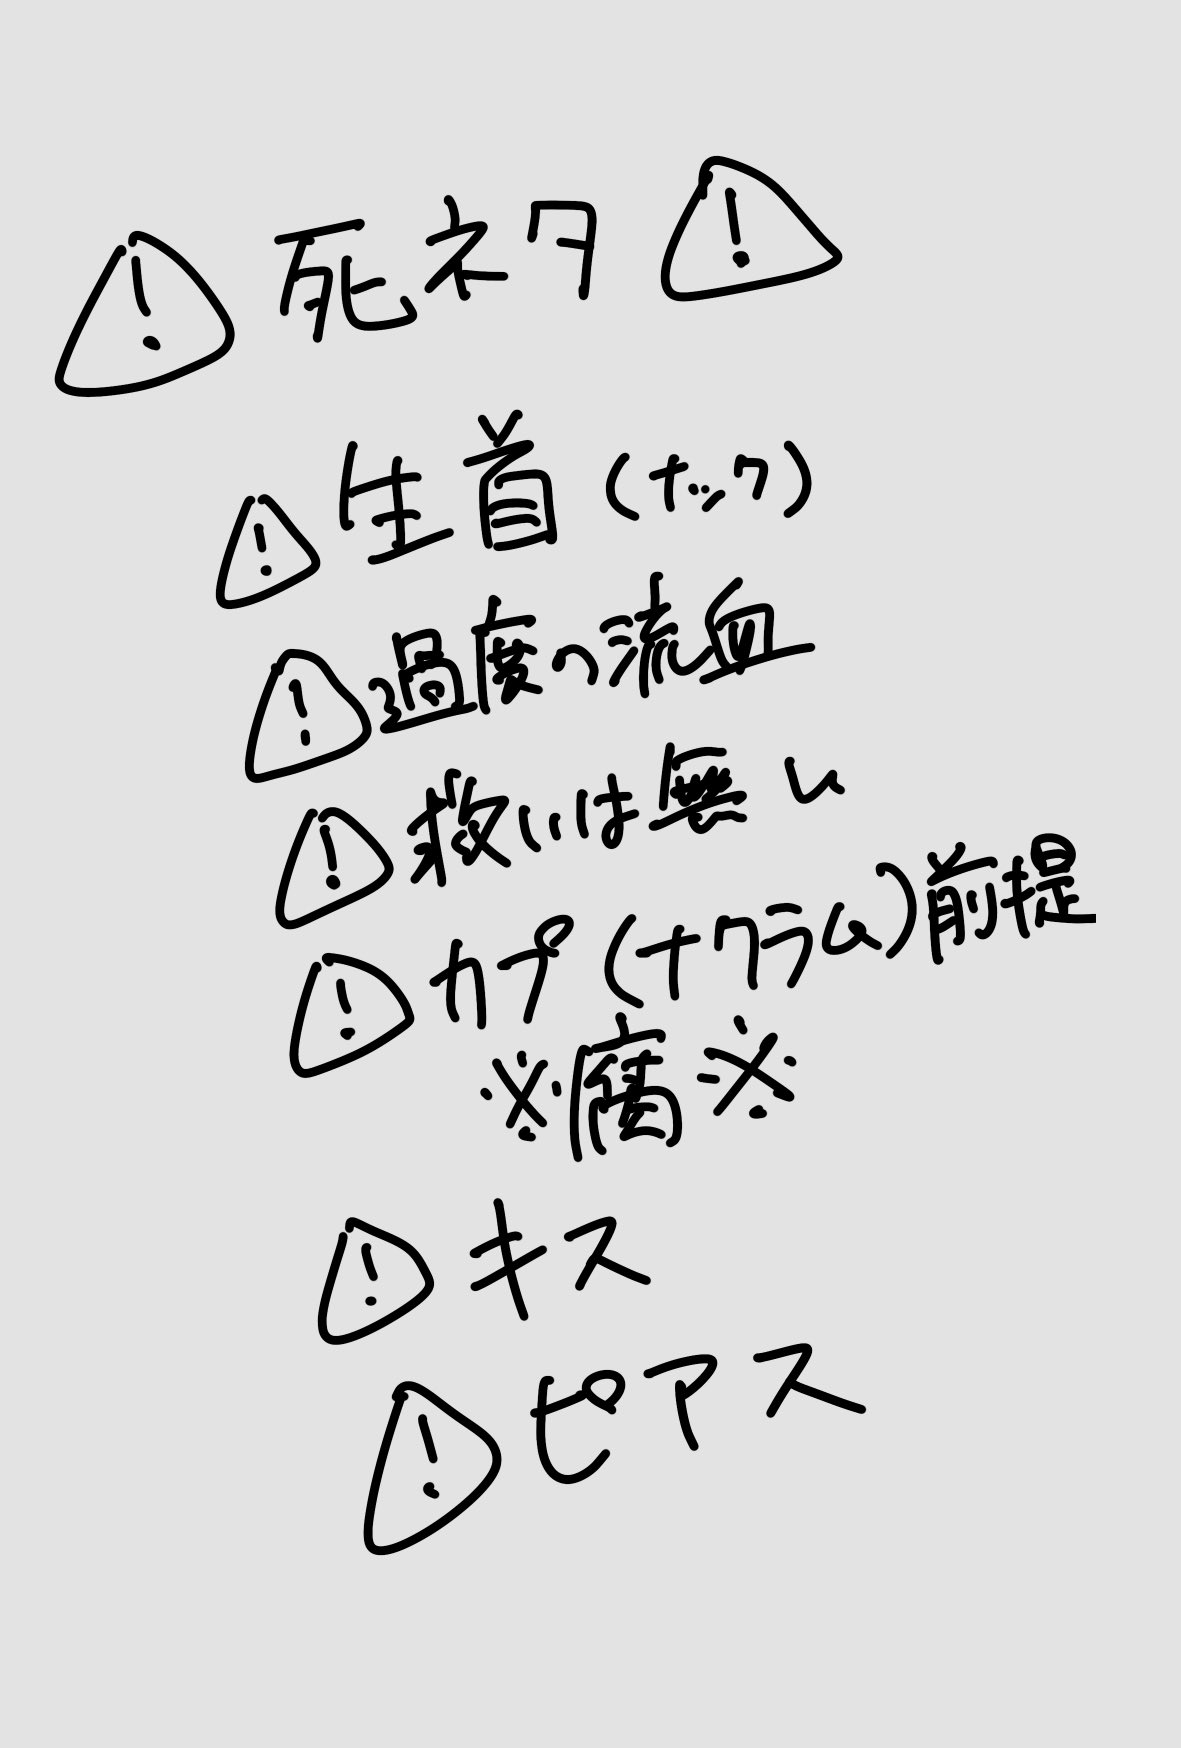 ⚠死ネタ⚠
⚠生首(ナック)
⚠過度の流血
⚠救いは無い
⚠カプ(ナクラム)前提
※腐※
⚠キス
⚠ピアス